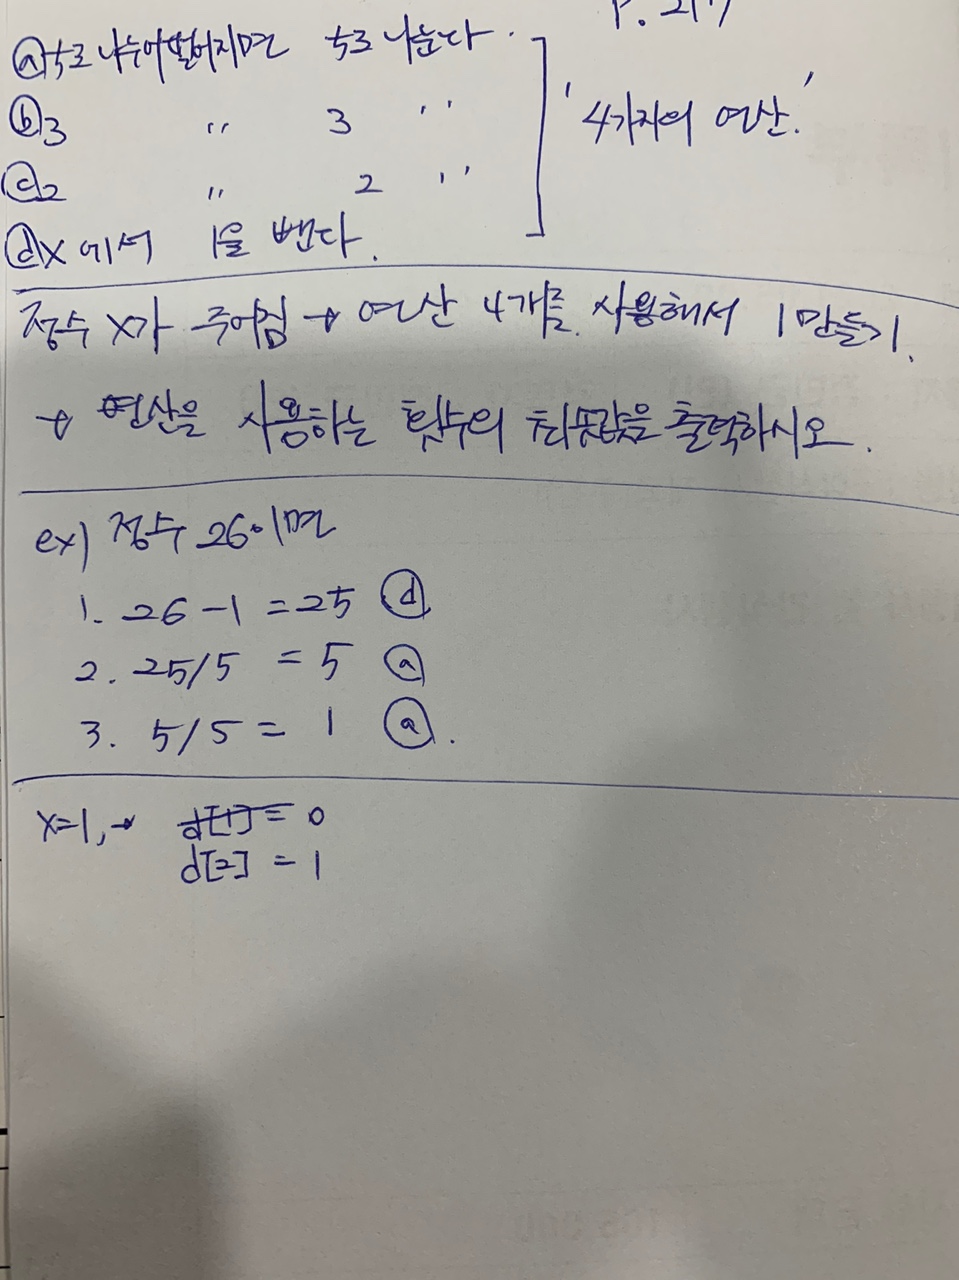 P. 217
ⓐ 5로 나누어떨어지면 5로 나눈다.
ⓑ 3 〃 3 〃
ⓒ 2 〃 2 〃
ⓓ X에서 1을 뺀다.
'4가지의 연산.'
정수 X가 주어짐 → 연산 4개를 사용해서 1만들기.
→ 연산을 사용하는 횟수의 최솟값을 출력하시오.
ex) 정수 26이면
1. 26 - 1 = 25 ⓓ
2. 25/5 = 5 ⓐ
3. 5/5 = 1 ⓐ.
X=1, → d[1] = 0
d[2] = 1